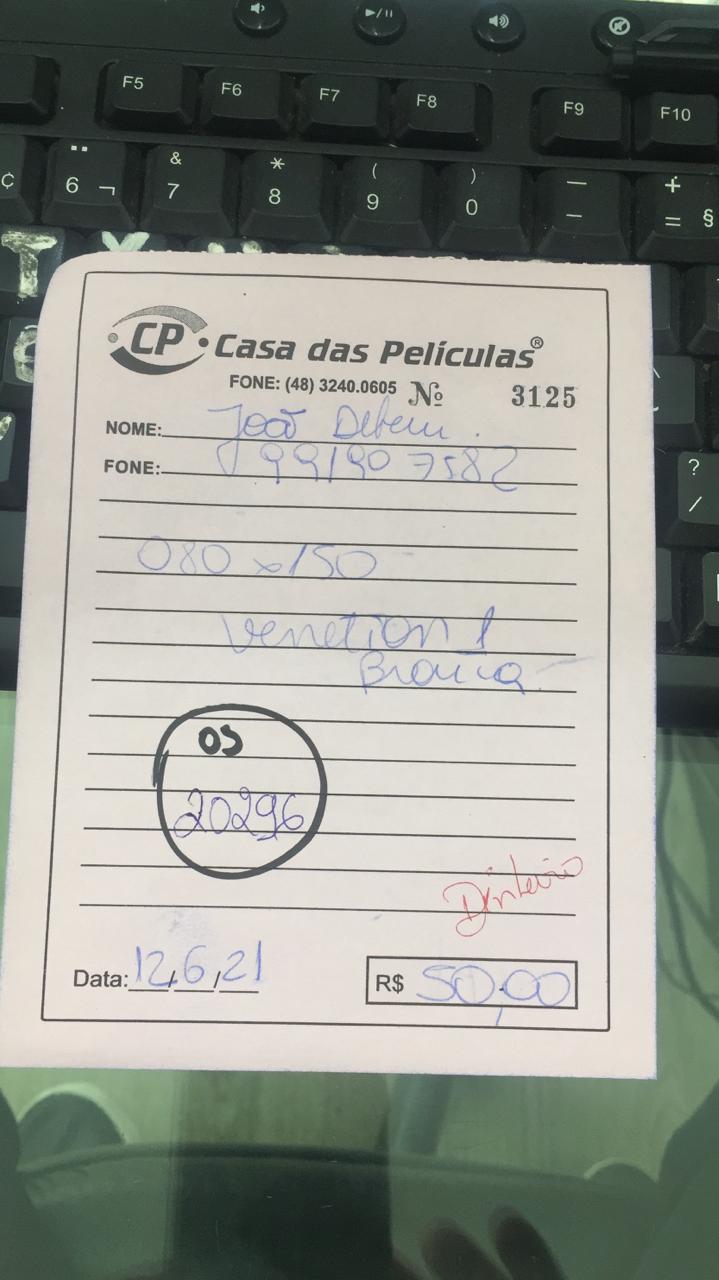 F5 F6 F7 F8 F9 F10
¢ 6 ¬ & 7 * 8 ( 9 ) 0 — – + = §
T Y
? /
CP Casa das Películas®
FONE: (48) 3240.0605 Nº 3125
NOME: João Debem.
FONE: 991907582
080 x 150
Venetion 1
Branca
OS
20296
Dinheiro
Data: 12/6/21 R$ 50,00